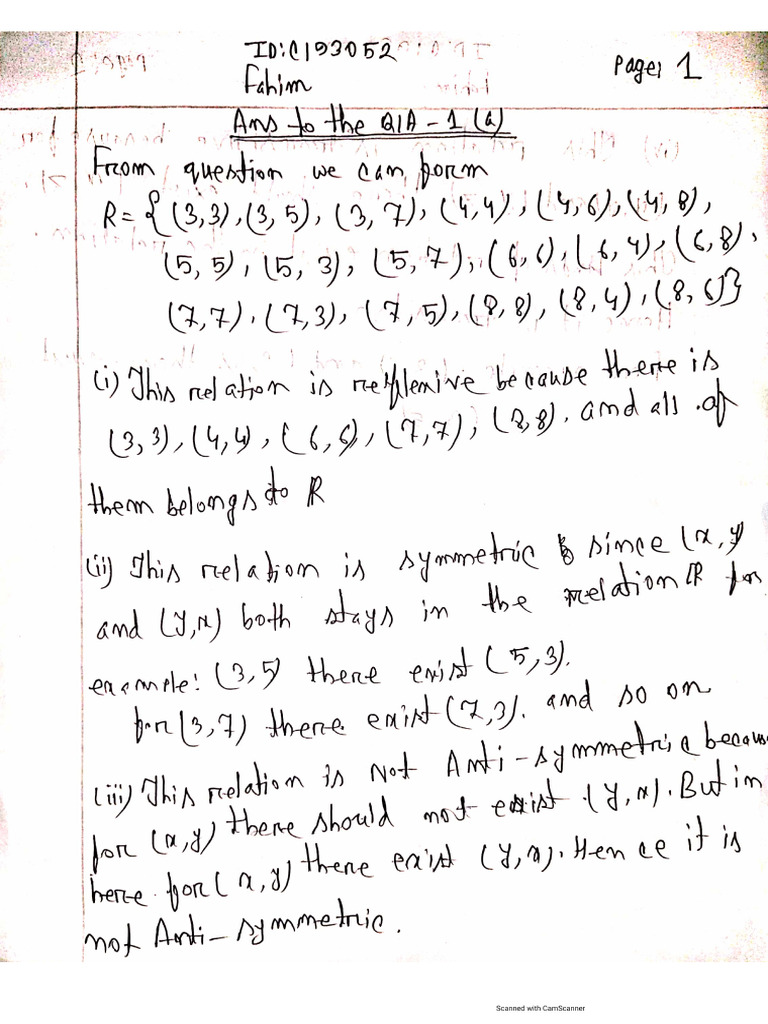 ID:C193052
Fahim
Page: 1
Ans to the Q/A - 1 (a)
From question we can form
R = {(3,3), (3, 5), (3, 7), (4,4), (4,6), (4,8),
(5, 5), (5, 3), (5, 7), (6,6), (6,4), (6,8),
(7,7), (7,3), (7,5), (8,8), (8,4), (8,6)}
(i) This relation is reflexive because there is
(3,3), (4,4), (6,6), (7,7), (8,8). and all of
them belongs to R
(ii) This relation is symmetric since (x,y
and (y,x) both stays in the relation R for
example: (3,5) there exist (5,3).
for (3,7) there exist (7,3). and so on
(iii) This relation is Not Anti-symmetric because
for (x,y) there should not exist (y,x). But in
here for (x,y) there exist (y,x). Hence it is
not Anti-symmetric.
Scanned with CamScanner